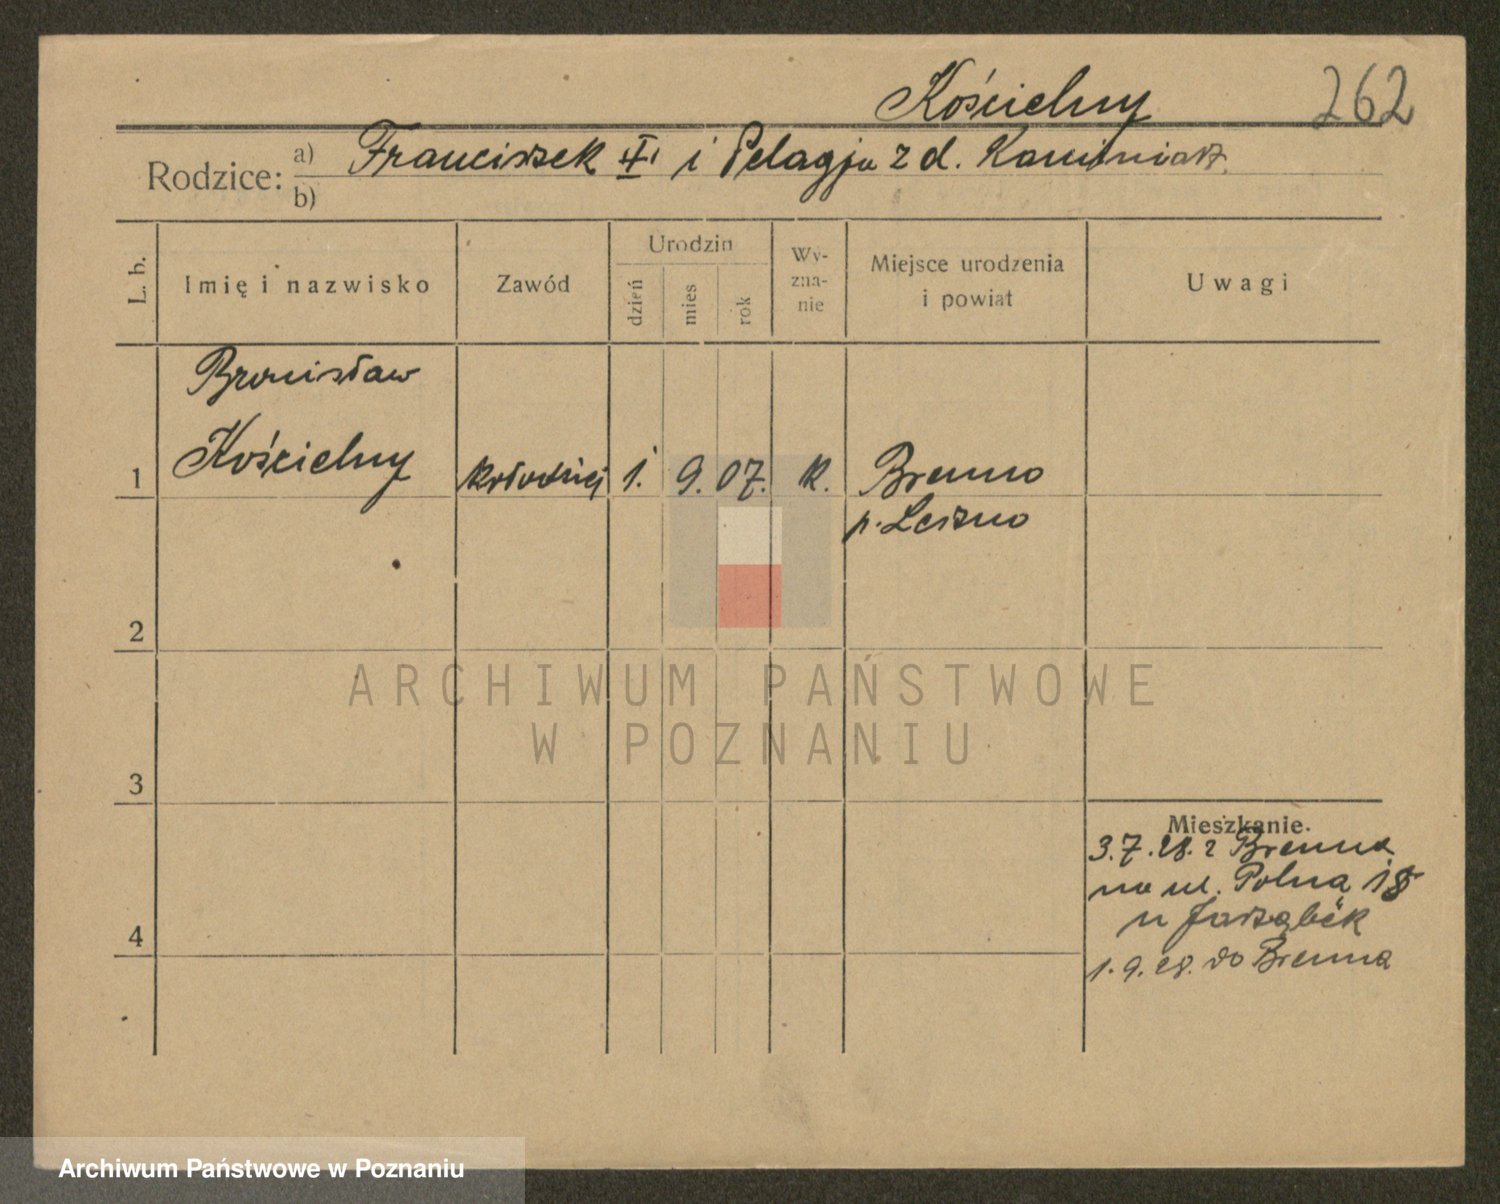 Kościelny 262
Rodzice: a) Franciszek i Pelagja z d. Kaminiarz
b)
L. b. Imię i nazwisko Zawód Urodzin dzień mies rok Wy-zna-nie Miejsce urodzenia i powiat Uwagi
Bronisław
1 Kościelny kołodziej 1. 9. 07. k. Brenno
p. Leszno
2
ARCHIWUM PAŃSTWOWE
W POZNANIU
3
Mieszkanie.
3.7.28. z Brenna
na ul. Polna 18
4 u
1.9.28. do Brenna
Archiwum Państwowe w Poznaniu